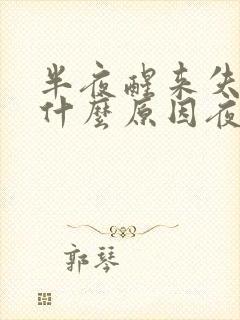 半夜醒来失
什麼原因夜
郭琴